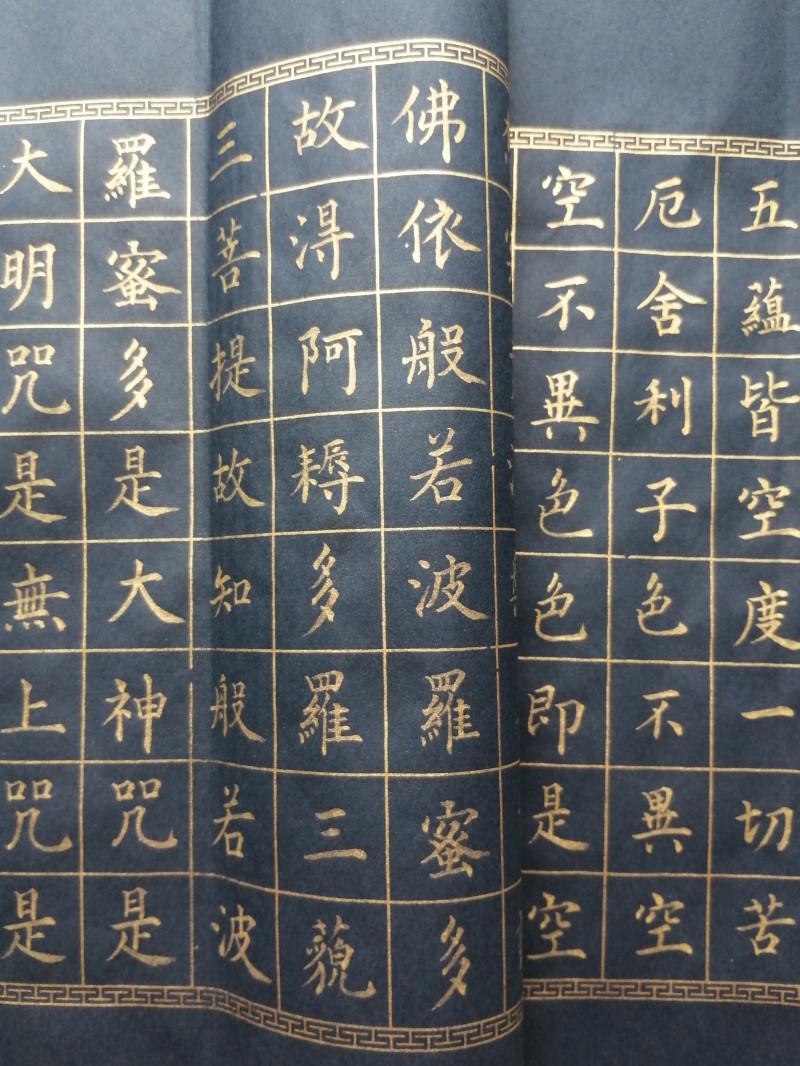 五蘊皆空度一切苦
厄舍利子色不異空
空不異色色即是空
佛依般若波羅蜜多
故淂阿耨多羅三藐
三菩提故知般若波
羅蜜多是大神咒是
大明咒是無上咒是